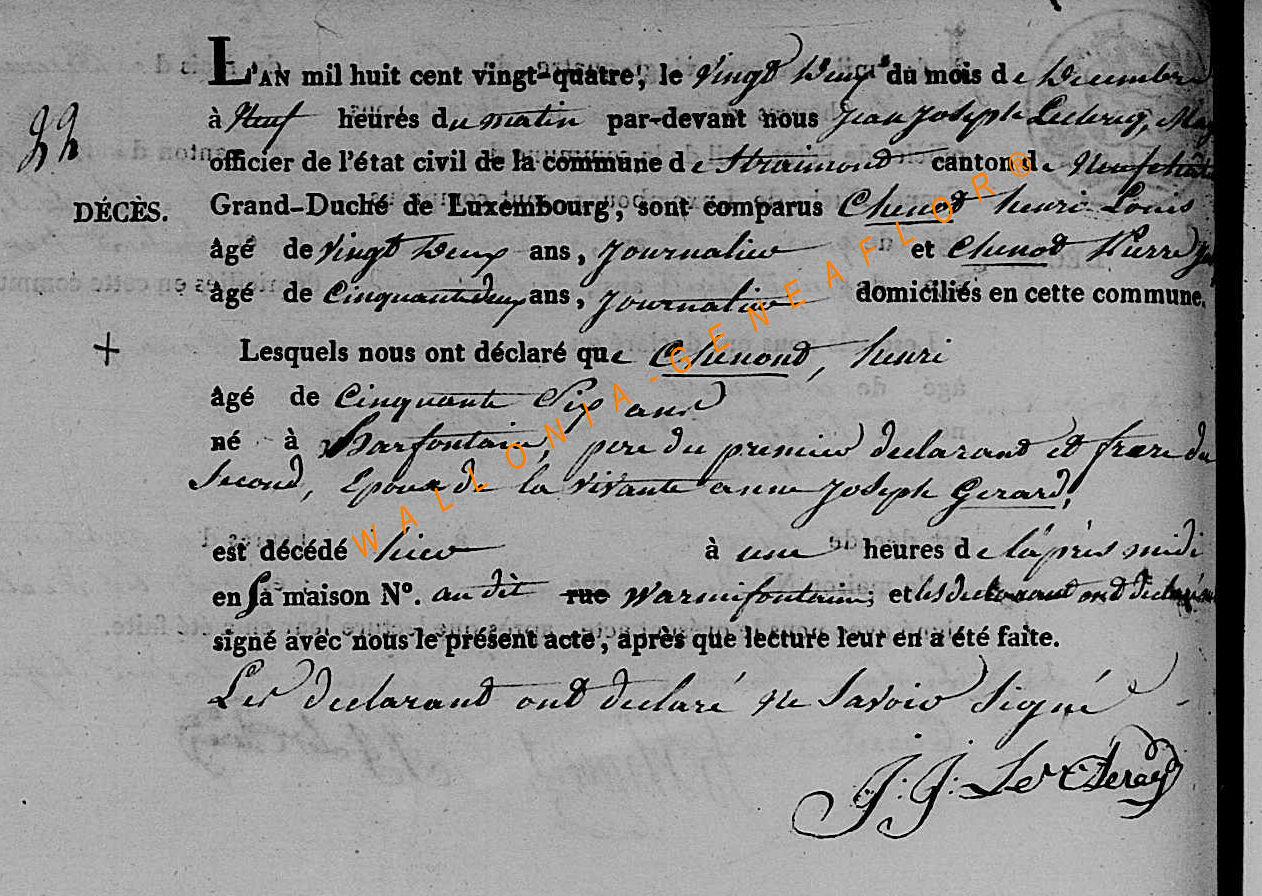 L'AN mil huit cent vingt-quatre, le Vingt Deux du mois de Decembre
à Neuf heures du matin par-devant nous Jean Joseph Leclercq,
22
officier de l'état civil de la commune de Straimond canton de Neufchate
DÉCÈS. Grand-Duché de Luxembourg, sont comparus Chenot henri Louis
âgé de Vingt Deux ans, Journalier et Chenot Pierre
âgé de Cinquante deux ans, Journalier domiciliés en cette commune.
+ Lesquels nous ont déclaré que Chenond, henri
âgé de Cinquante Six ans
né à Warfontain, pere du premier declarant et frere du
Second, Epoux de la vivante anne Joseph Gerard,
est décédé hier à une heures de l'après midi
en sa maison N°. au dit rue Warmifontaine; et les declarant ont declaré
signé avec nous le présent acte, après que lecture leur en a été faite.
Les declarant ont declaré ne Savoir Signé
J: J: Le Clercq
WALLONIA-GENEAFLOR®